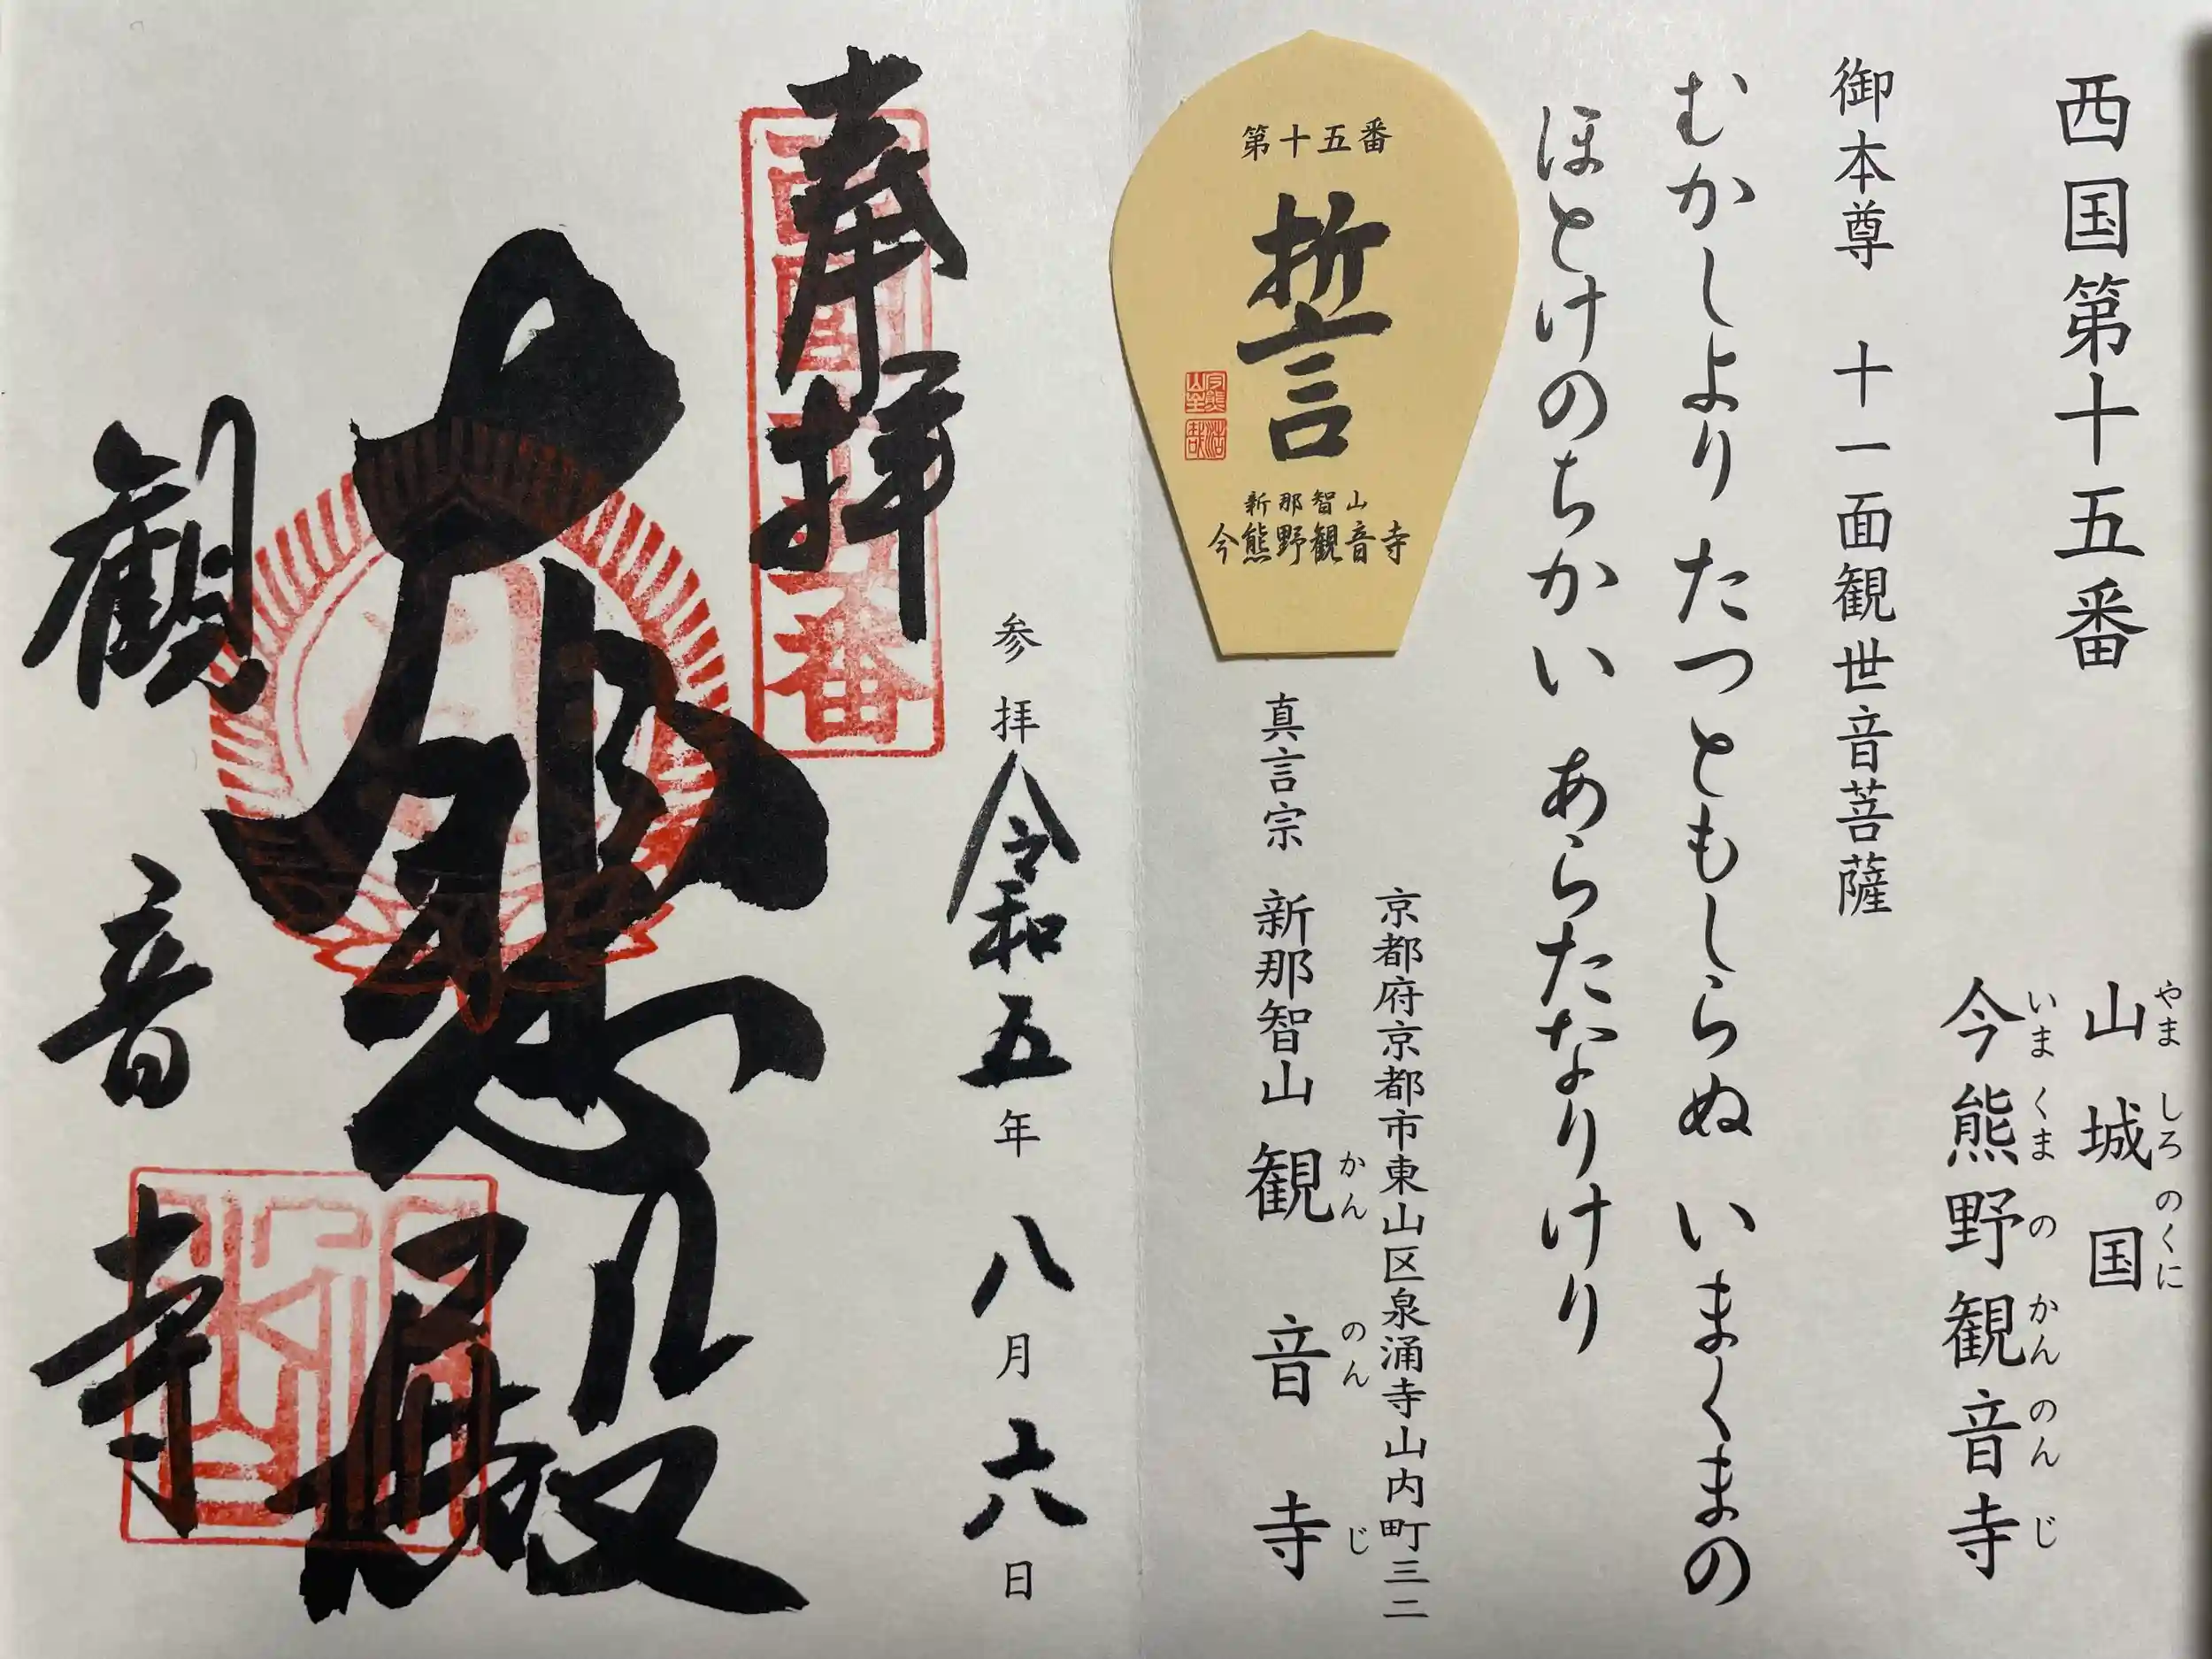 西国第十五番
山城国
やましろのくに
今熊野観音寺
いまくまのかんのんじ
御本尊 十一面観世音菩薩
むかしより たつともしらぬ いまくまの
ほとけのちかい あらたなりけり
第十五番
誓
新那智山
今熊野観音寺
京都府京都市東山区泉涌寺山内町三二
真言宗 新那智山 観音寺
かんのんじ
参拝 令和五年 八月 六日
奉拝
大悲殿
観音寺